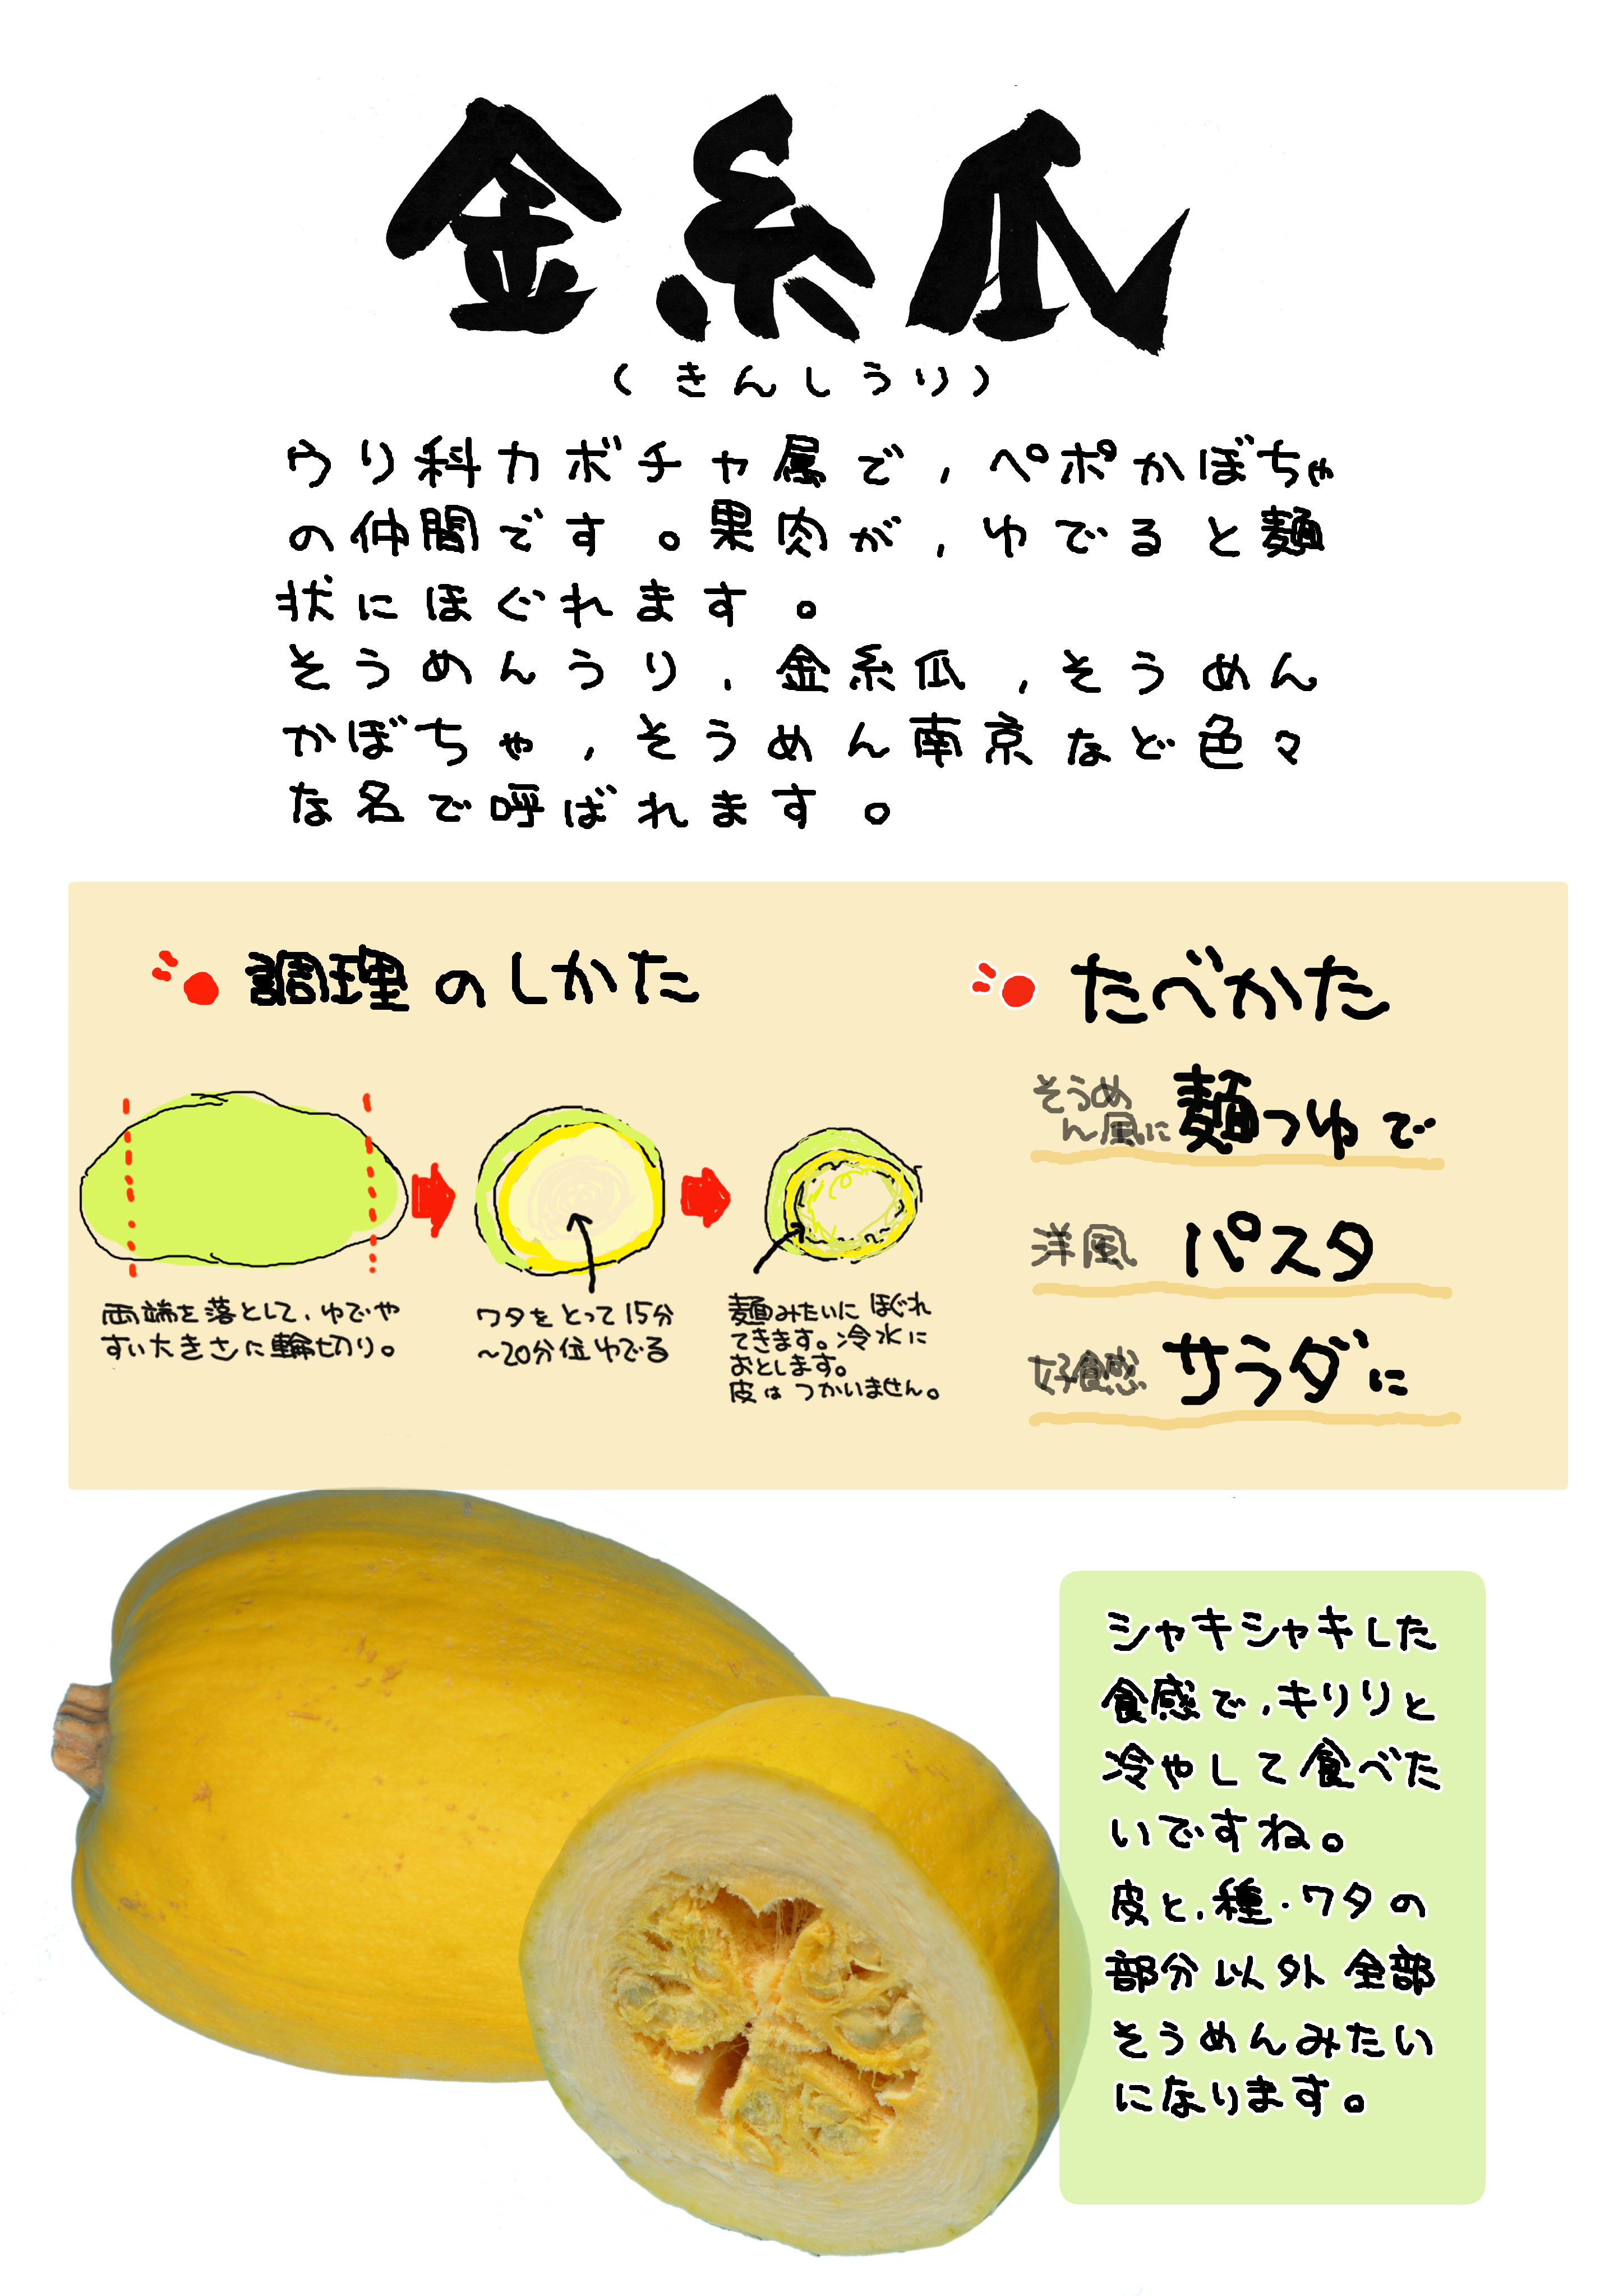 金糸瓜
(きんしうり)
ウリ科カボチャ属で,ペポかぼちゃ
の仲間です。果肉が,ゆでると麺
状にほぐれます。
そうめんうり,金糸瓜,そうめん
かぼちゃ,そうめん南京など色々
な名で呼ばれます。
調理のしかた
両端を落として,ゆでや
すい大きさに輪切り。
ワタをとって15分
~20分位ゆでる
麺みたいにほぐれ
てきます。冷水に
おとします。
皮はつかいません。
たべかた
そうめ
ん風に 麺つゆで
洋風 パスタ
好食感 サラダに
シャキシャキした
食感で,キリリと
冷やして食べた
いですね。
皮と,種・ワタの
部分以外全部
そうめんみたい
になります。